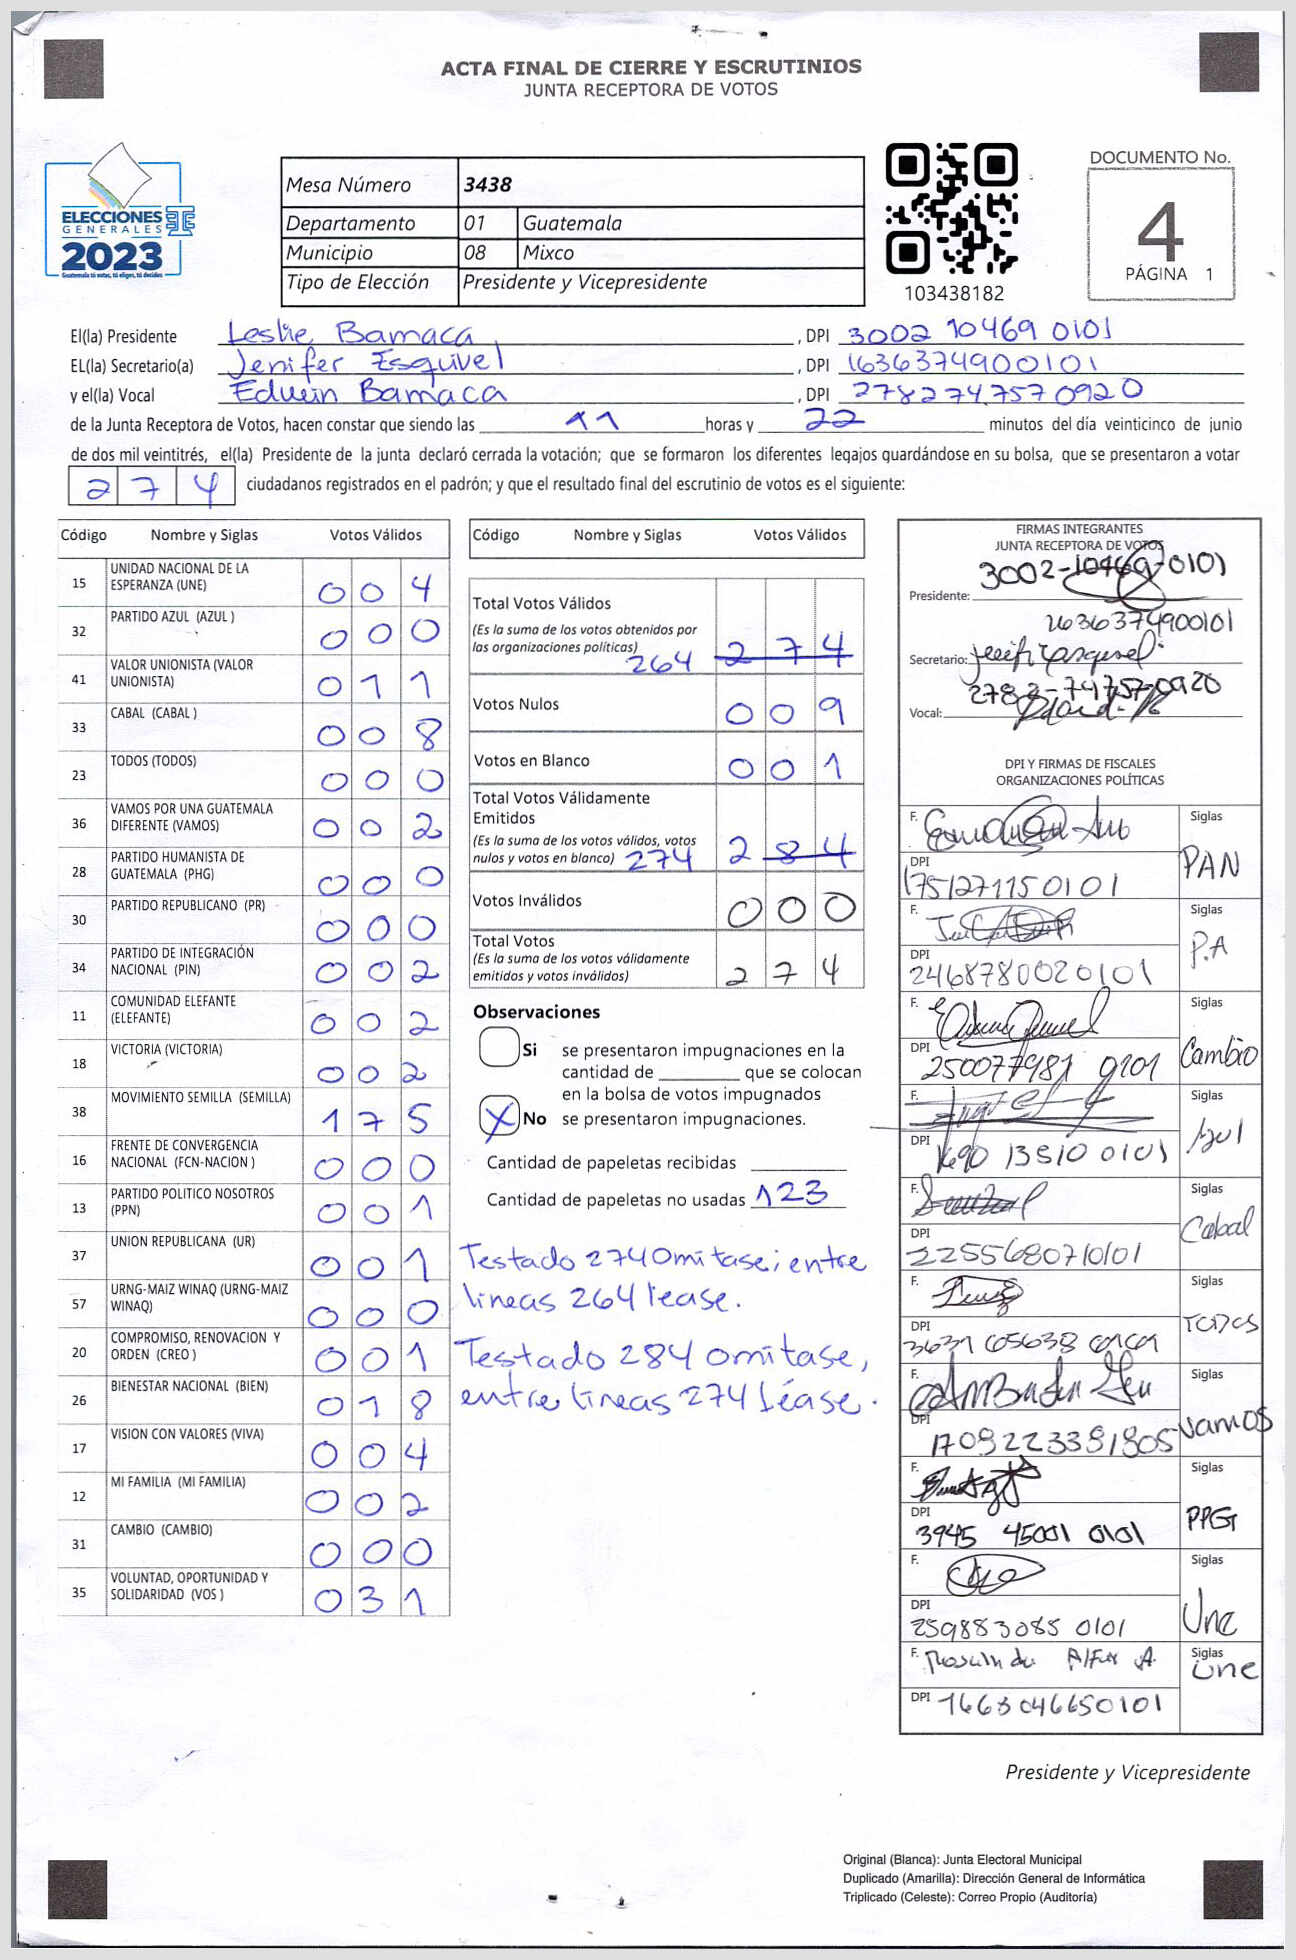 ACTA FINAL DE CIERRE Y ESCRUTINIOS
JUNTA RECEPTORA DE VOTOS
ELECCIONES
GENERALES
2023
Guatemala tú votas, tú eliges, tú decides
Mesa Número 3438
Departamento 01 Guatemala
Municipio 08 Mixco
Tipo de Elección Presidente y Vicepresidente
103438182
DOCUMENTO No.
4
PÁGINA 1
El(la) Presidente Leslie Bamaca , DPI 3002 10469 0101
EL(la) Secretario(a) Jenifer Esquivel , DPI 1636374900101
y el(la) Vocal Edwin Bamaca , DPI 2782747570920
de la Junta Receptora de Votos, hacen constar que siendo las 11 horas y 22 minutos del día veinticinco de junio
de dos mil veintitrés, el(la) Presidente de la junta declaró cerrada la votación; que se formaron los diferentes legajos guardándose en su bolsa, que se presentaron a votar
274 ciudadanos registrados en el padrón; y que el resultado final del escrutinio de votos es el siguiente:
Código Nombre y Siglas Votos Válidos
15 UNIDAD NACIONAL DE LA ESPERANZA (UNE) 004
32 PARTIDO AZUL (AZUL ) 000
41 VALOR UNIONISTA (VALOR UNIONISTA) 011
33 CABAL (CABAL ) 008
23 TODOS (TODOS) 000
36 VAMOS POR UNA GUATEMALA DIFERENTE (VAMOS) 002
28 PARTIDO HUMANISTA DE GUATEMALA (PHG) 000
30 PARTIDO REPUBLICANO (PR) 000
34 PARTIDO DE INTEGRACIÓN NACIONAL (PIN) 002
11 COMUNIDAD ELEFANTE (ELEFANTE) 002
18 VICTORIA (VICTORIA) 002
38 MOVIMIENTO SEMILLA (SEMILLA) 175
16 FRENTE DE CONVERGENCIA NACIONAL (FCN-NACION ) 000
13 PARTIDO POLITICO NOSOTROS (PPN) 001
37 UNION REPUBLICANA (UR) 001
57 URNG-MAIZ WINAQ (URNG-MAIZ WINAQ) 000
20 COMPROMISO, RENOVACION Y ORDEN (CREO ) 001
26 BIENESTAR NACIONAL (BIEN) 018
17 VISION CON VALORES (VIVA) 004
12 MI FAMILIA (MI FAMILIA) 002
31 CAMBIO (CAMBIO) 000
35 VOLUNTAD, OPORTUNIDAD Y SOLIDARIDAD (VOS ) 031
Código Nombre y Siglas Votos Válidos
Total Votos Válidos
(Es la suma de los votos obtenidos por
las organizaciones políticas) 264 274
Votos Nulos 009
Votos en Blanco 001
Total Votos Válidamente
Emitidos
(Es la suma de los votos válidos, votos
nulos y votos en blanco) 274 284
Votos Inválidos 000
Total Votos
(Es la suma de los votos válidamente
emitidos y votos inválidos) 274
Observaciones
Si se presentaron impugnaciones en la
cantidad de que se colocan
en la bolsa de votos impugnados
X No se presentaron impugnaciones.
Cantidad de papeletas recibidas
Cantidad de papeletas no usadas 123
Testado 274 Omitase; entre
lineas 264 léase.
Testado 284 omitase,
entre lineas 274 Léase.
FIRMAS INTEGRANTES
JUNTA RECEPTORA DE VOTOS
3002-10469-0101
Presidente:
1636374900101
Secretario:
2782-74757-0920
Vocal:
DPI Y FIRMAS DE FISCALES
ORGANIZACIONES POLÍTICAS
F. Siglas PAN
DPI 1751271150101
F. Siglas P.A
DPI 2468780020101
F. Siglas Cambio
DPI 250077981 0101
F. Siglas Azul
DPI 1690 13810 0101
F. Siglas Cabal
DPI 2255680710101
F. Siglas TODOS
DPI
F. Siglas Vamos
DPI
F. Siglas PPG
DPI 3945 45001 0101
F. Siglas Une
DPI 259883085 0101
F. Siglas Une
DPI 1663046650101
Presidente y Vicepresidente
Original (Blanca): Junta Electoral Municipal
Duplicado (Amarilla): Dirección General de Informática
Triplicado (Celeste): Correo Propio (Auditoría)